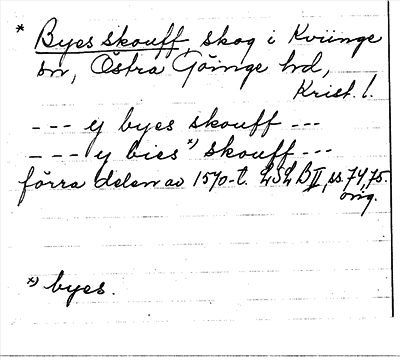 * Byes skouff, skog i Kviinge
sn, Östra Göinge hd,
Krist. l.
--- y byes skouff ---
--- y bies *) skouff ---
förra delen av 1570-t. LSL B II, ss. 74, 75.
orig.
*) byes.